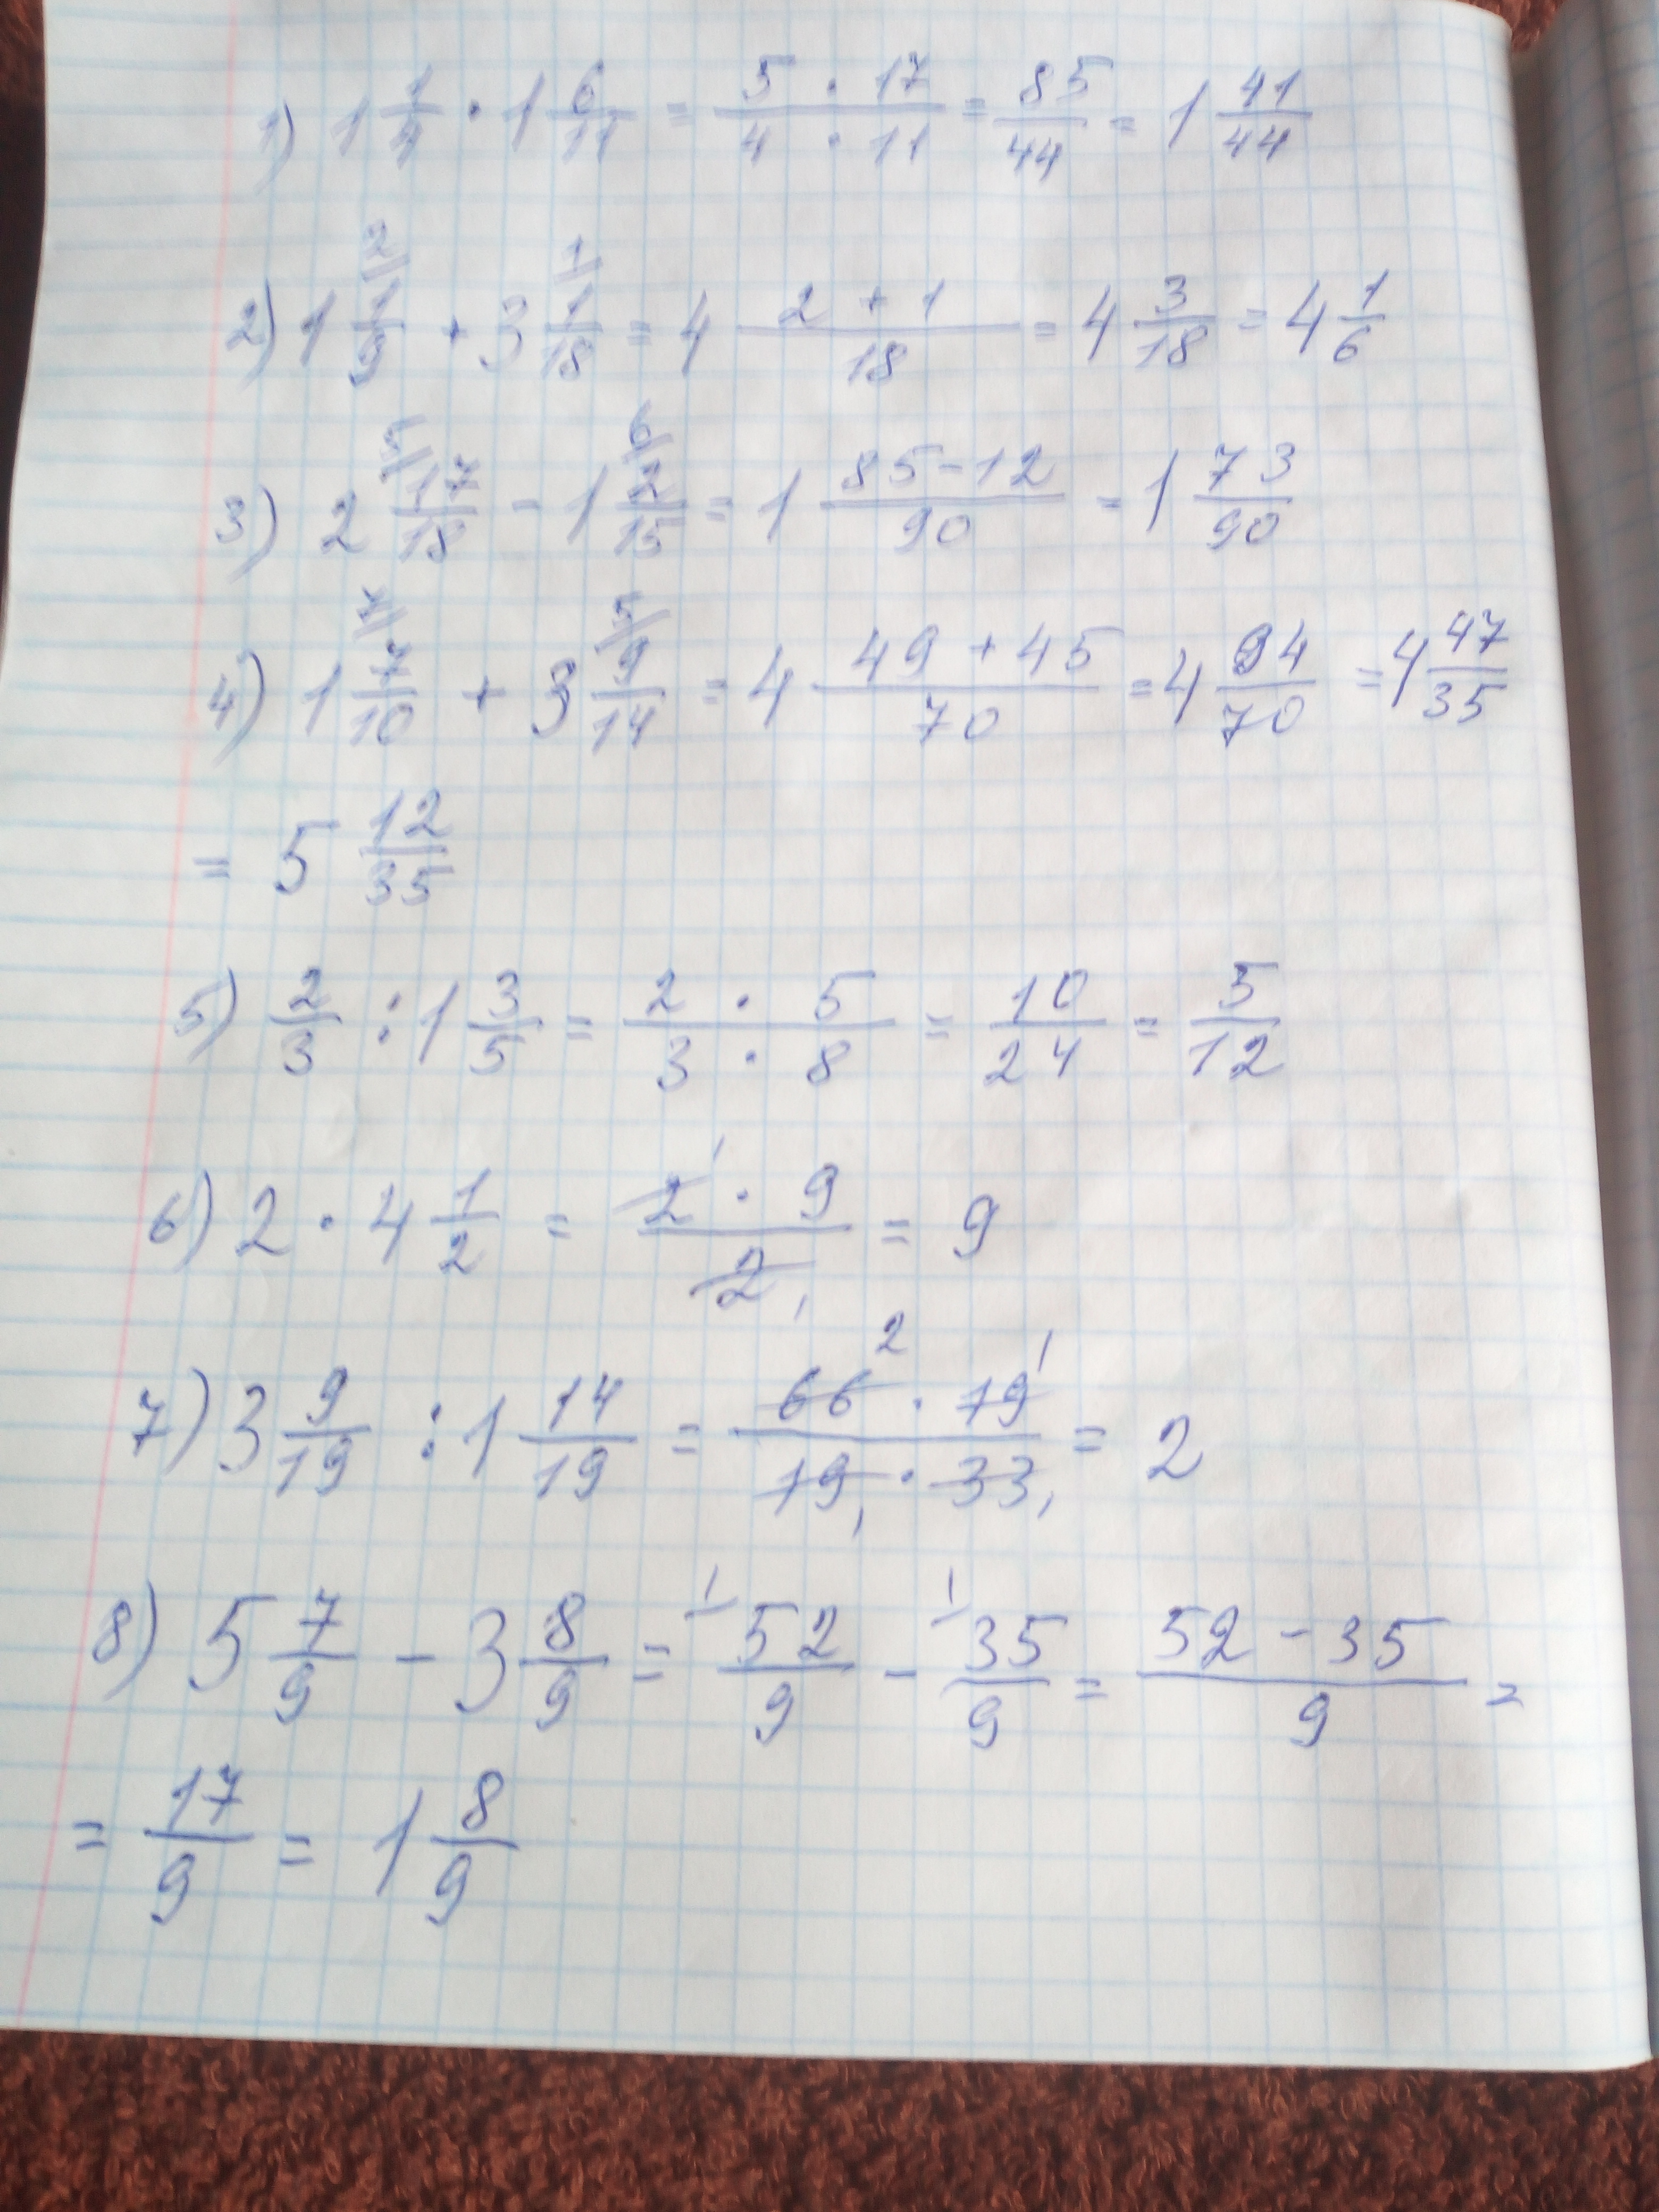 1) 1 1/4 · 1 6/11 = (5 · 17)/(4 · 11) = 85/44 = 1 41/44
2) 1 (2/ 1/9 + 3 (1/ 1/18 = 4 (2 + 1)/18 = 4 3/18 = 4 1/6
3) 2 (5/ 17/18 - 1 (6/ 2/15 = 1 (85 - 12)/90 = 1 73/90
4) 1 (7/ 7/10 + 3 (5/ 9/14 = 4 (49 + 45)/70 = 4 94/70 = 4 47/35
= 5 12/35
5) 2/3 : 1 3/5 = (2 · 5)/(3 · 8) = 10/24 = 5/12
6) 2 · 4 1/2 = (2 1 · 9)/(2 1) = 9
7) 3 9/19 : 1 14/19 = (66 2 · 19 1)/(19 1 · 33 1) = 2
8) 5 7/9 - 3 8/9 = 1/ 52/9 - 1/ 35/9 = (52 - 35)/9 =
= 17/9 = 1 8/9